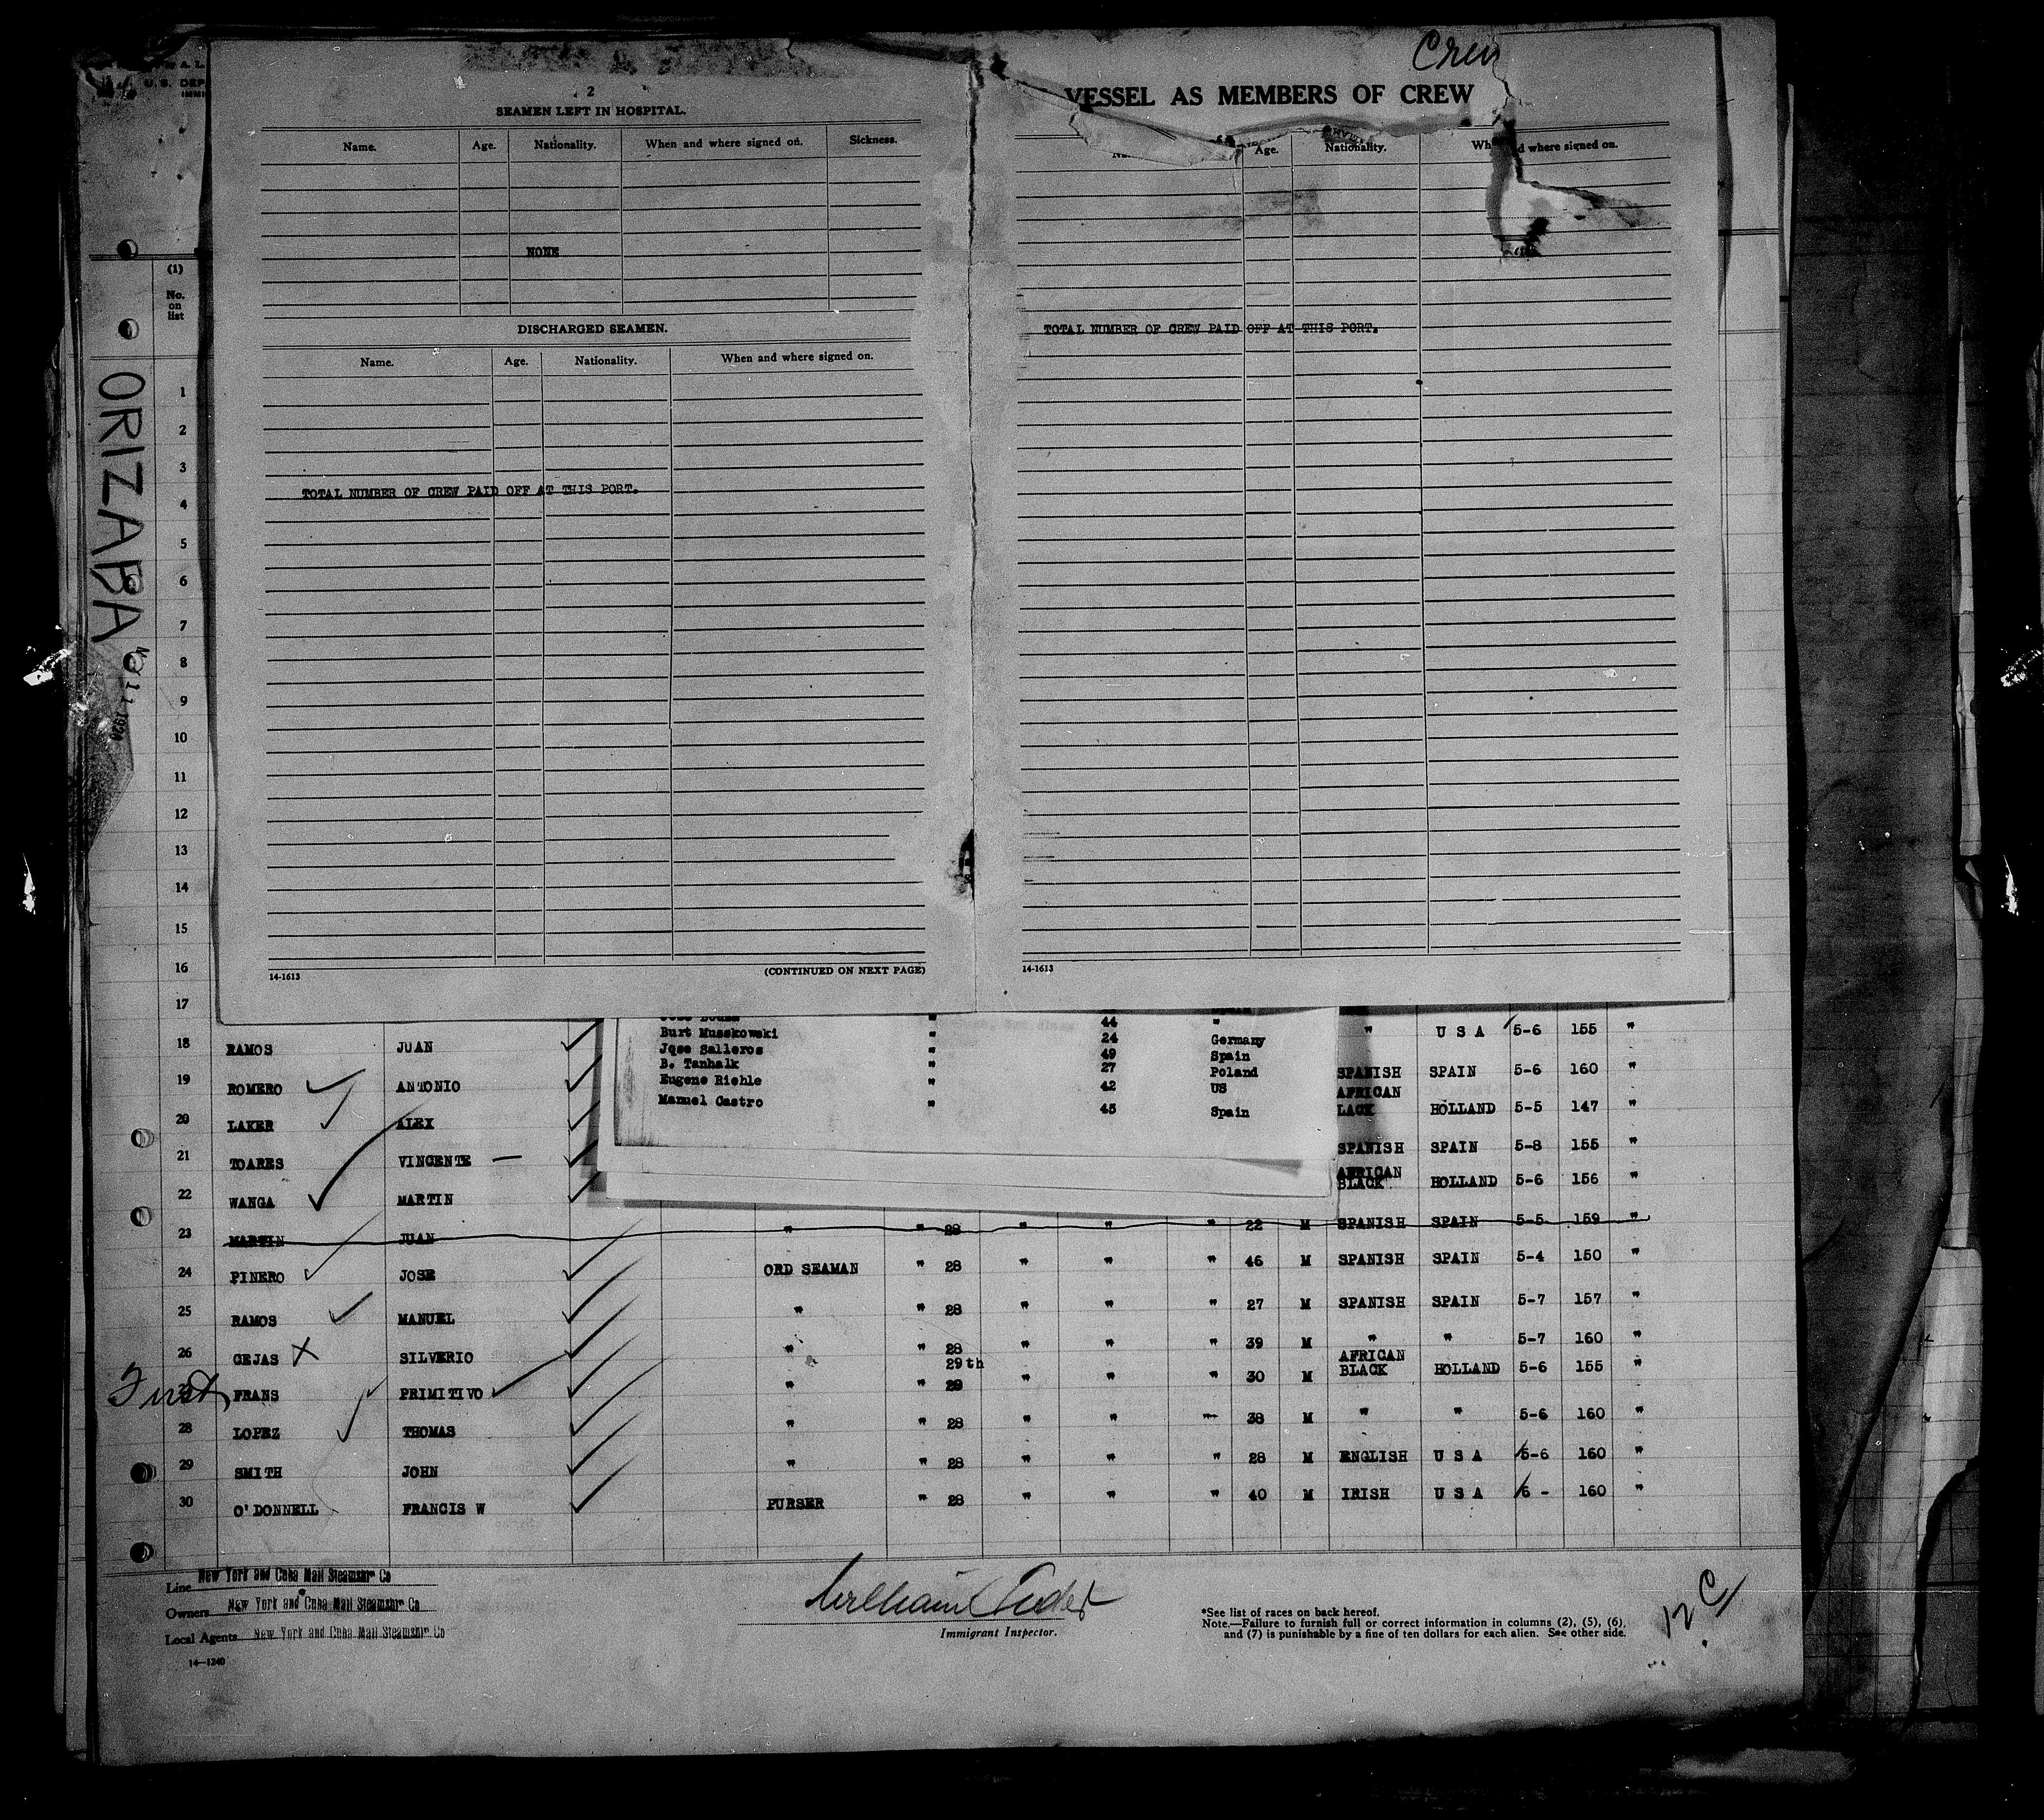 Crew
U.S. DEP
IMMI
2
SEAMEN LEFT IN HOSPITAL.
Name. Age. Nationality. When and where signed on. Sickness.
NONE
DISCHARGED SEAMEN.
Name. Age. Nationality. When and where signed on.
TOTAL NUMBER OF CREW PAID OFF AT THIS PORT.
14-1613 (CONTINUED ON NEXT PAGE)
VESSEL AS MEMBERS OF CREW
Age. Nationality. where signed on.
TOTAL NUMBER OF CREW PAID OFF AT THIS PORT.
14-1613
ORIZABA
(1)
No.
on
list
1
2
3
4
5
6
7
8
9
10
11
12
13
14
15
16
17
44 "
Burt Musskowski " 24 Germany
Jose Salleros " 49 Spain
B. Tanhalk " 27 Poland
Eugene Riehle " 42 US
Manuel Castro " 45 Spain
18 RAMOS JUAN " U S A 5-6 155 "
19 ROMERO ANTONIO SPANISH SPAIN 5-6 160 "
20 LAKER ALEX AFRICAN LACK HOLLAND 5-5 147 "
21 TOARES VINCENTE — SPANISH SPAIN 5-8 155 "
22 WANGA MARTIN AFRICAN BLACK HOLLAND 5-6 156 "
23 MARTIN JUAN " " 28 " " " 22 M SPANISH SPAIN 5-5 159 "
24 PINERO JOSE ORD SEAMAN " 28 " " " 46 M SPANISH SPAIN 5-4 150 "
25 RAMOS MANUEL " " 28 " " " 27 M SPANISH SPAIN 5-7 157 "
26 CEJAS X SILVERIO " " 28 " " " 39 M " " 5-7 160 "
First FRANS PRIMITIVO " " 29th 28 " " " 30 M AFRICAN BLACK HOLLAND 5-6 155 "
28 LOPEZ THOMAS " " 28 " " " 38 M " " 5-6 160 "
29 SMITH JOHN " " 28 " " " 28 M ENGLISH U S A 5-6 160 "
30 O'DONNELL FRANCIS W PURSER " 28 " " " 40 M IRISH U S A 6 - 160 "
Line New York and Cuba Mail Steamship Co
Owners New York and Cuba Mail Steamship Co
Local Agents New York and Cuba Mail Steamship Co
14—1240
William
Immigrant Inspector.
*See list of races on back hereof.
Note.—Failure to furnish full or correct information in columns (2), (5), (6),
and (7) is punishable by a fine of ten dollars for each alien. See other side.
12 C